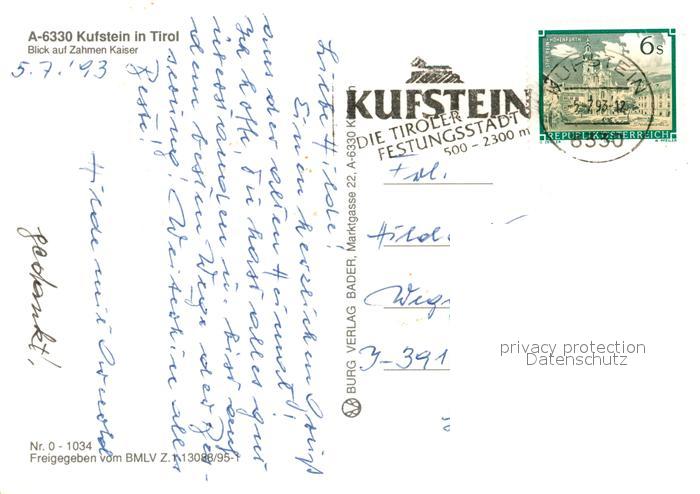 A-6330 Kufstein in Tirol
Blick auf Zahmen Kaiser
5.7.'93
Liebe Hilde!
Einen herzlichen Gruß
aus der alten Heimat!
Ich hoffe, Du hast alles gut
überstanden u. bist auf
dem besten Wege der Ge-
sung! Weiterhin alles
Beste!
Hilde und Arnold
gedankt!
Nr. 0 - 1034
Freigegeben vom BMLV Z.1.13088/95-1
BURG VERLAG BADER, Marktgasse 22, A-6330 K
KUFSTEIN
DIE TIROLER
FESTUNGSSTADT
500 - 2300 m
6 S
REPUBLIK ÖSTERREICH
KUFSTEIN
5.-7.93-12
6330
Frl.
Hild
Weg
D-391
privacy protection
Datenschutz